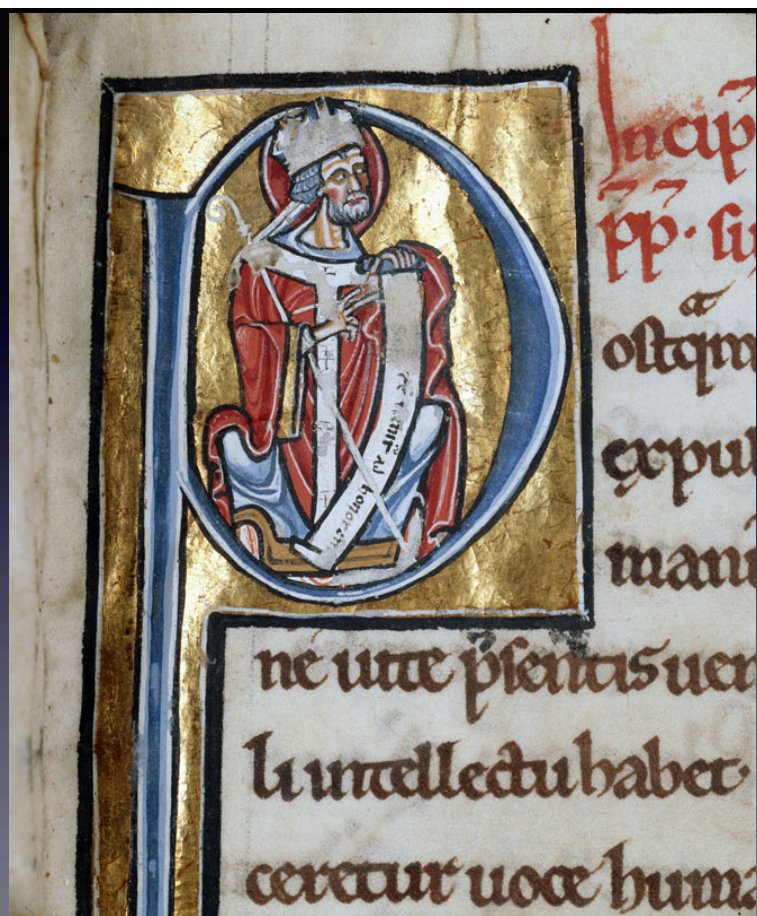 Incip̄
p̄p̄· su
Postqᵃm
expul
mani
ne uite p̄sentis uer
li intellectu habet·
ceretur uoce huma